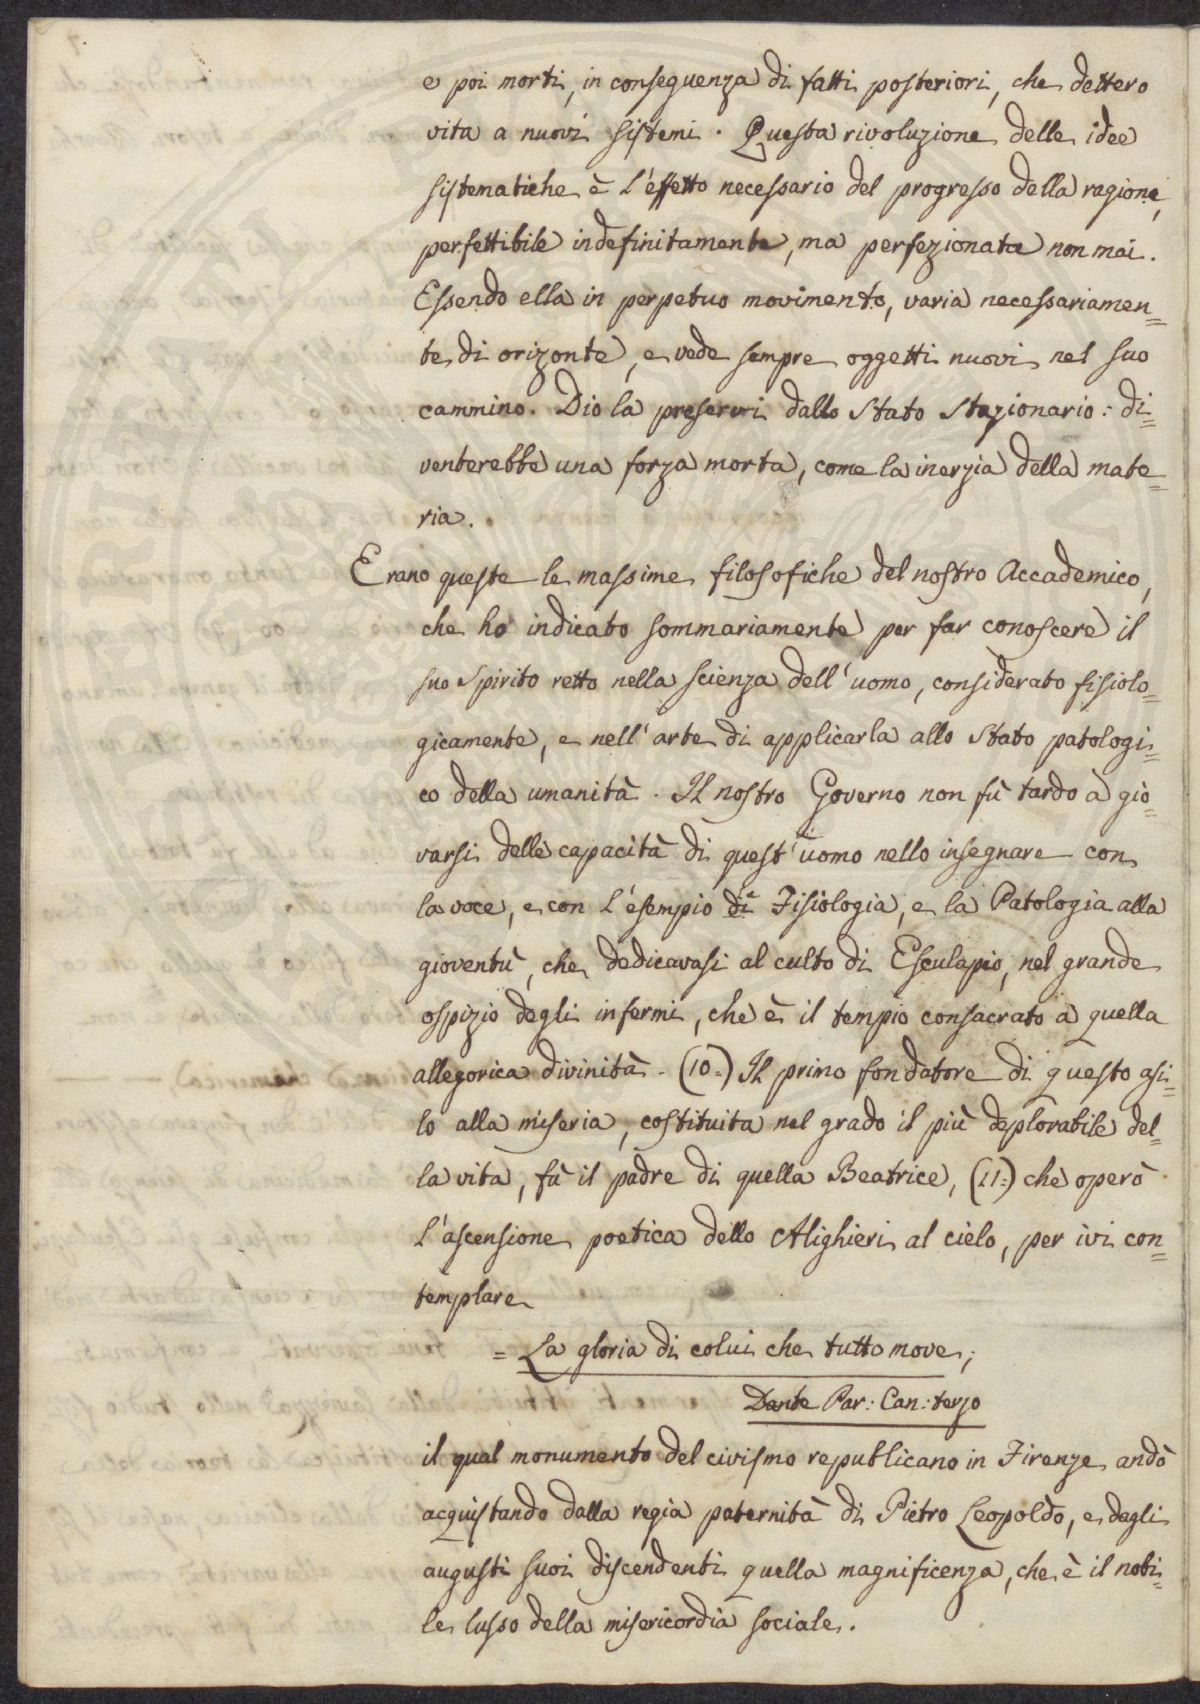 e poi morti, in conseguenza di fatti posteriori, che dettero
vita a nuovi sistemi. Questa rivoluzione delle idee
sistematiche è l'effetto necessario del progresso della ragione,
perfettibile indefinitamente, ma perfezionata non mai.
Essendo ella in perpetuo movimento, varia necessariamen=
te di orizonte, e vede sempre oggetti nuovi nel suo
cammino. Dio la preservi dallo stato stazionario: di=
venterebbe una forza morta, come la inerzia della mate=
ria.
Erano queste le massime filosofiche del nostro Accademico,
che ho indicato sommariamente per far conoscere il
suo spirito retto nella scienza dell'uomo, considerato fisiolo=
gicamente, e nell'arte di applicarla allo stato patologi=
co della umanità. Il nostro Governo non fù tardo à gio=
varsi delle capacità di quest'uomo nello insegnare con
la voce, e con l'esempio di la Fisiologia, e la Patologia alla
gioventù, che dedicavasi al culto di Esculapio, nel grande
ospizio degli infermi, che è il tempio consacrato à quella
allegorica divinità. (10=) Il primo fondatore di questo asi=
lo alla miseria, costituita nel grado il più deplorabile del=
la vita, fù il padre di quella Beatrice, (11=) che operò
l'ascensione poetica dello Alighieri al cielo, per ivi con=
templare
= La gloria di colui che tutto move;
Dante Par: Can: terzo
il qual monumento del civismo republicano in Firenze andò
acquistando dalla regia paternità di Pietro Leopoldo, e degli
augusti suoi discendenti quella magnificenza, che è il nobi=
le lusso della misericordia sociale.